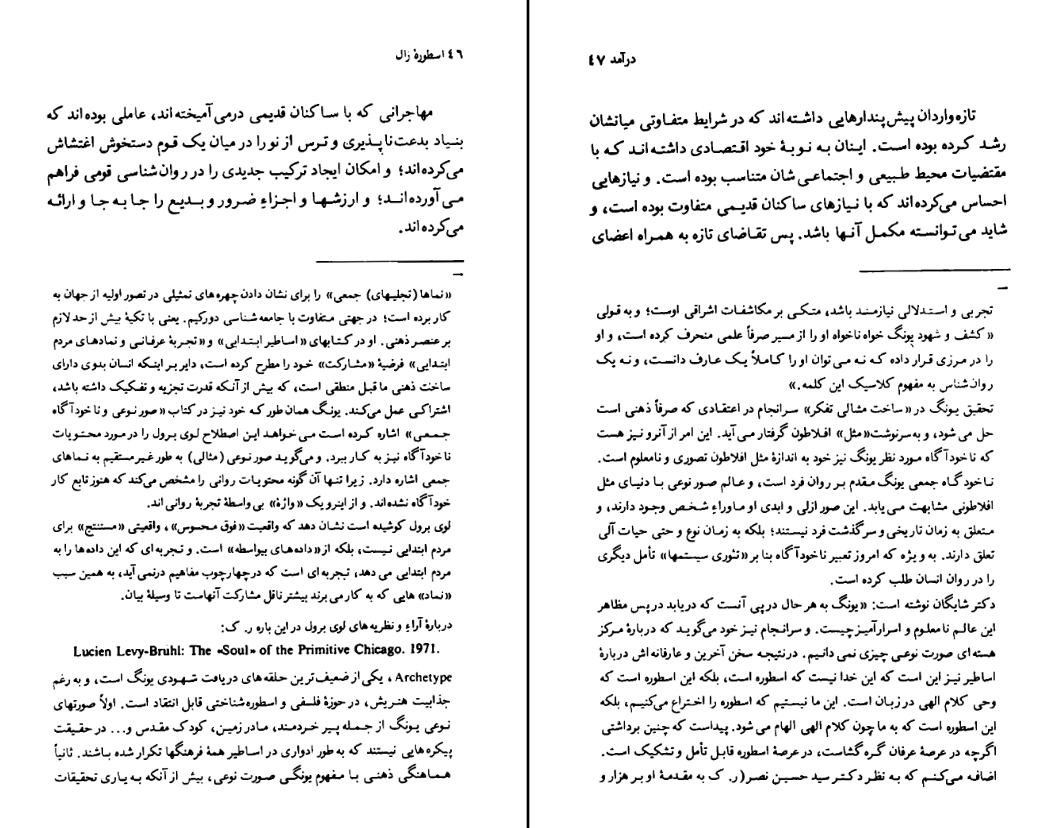 ٤٦ اسطورهٔ زال
مهاجرانی که با ساکنان قدیمی درمی‌آمیخته‌اند، عاملی بوده‌اند که
بنیاد بدعت‌ناپذیری و ترس از نو را در میان یک قوم دستخوش اغتشاش
می‌کرده‌اند؛ و امکان ایجاد ترکیب جدیدی را در روان‌شناسی قومی فراهم
می‌آورده‌اند؛ و ارزشها و اجزاءِ ضرور و بدیع را جا به جا و ارائه
می‌کرده‌اند.
«نماها (تجلیهای) جمعی» را برای نشان دادن چهره‌های تمثیلی در تصور اولیه از جهان به
کار برده است؛ در جهتی متفاوت با جامعه‌شناسی دورکیم. یعنی با تکیهٔ بیش از حد لازم
بر عنصر ذهنی. او در کتابهای «اساطیر ابتدایی» و «تجربهٔ عرفانی و نمادهای مردم
ابتدایی» فرضیهٔ «مشارکت» خود را مطرح کرده است، دایر بر اینکه انسان بدوی دارای
ساخت ذهنی ماقبل منطقی است، که بیش از آنکه قدرت تجزیه و تفکیک داشته باشد،
اشتراکی عمل می‌کند. یونگ همان طور که خود نیز در کتاب «صور نوعی و ناخودآگاه
جمعی» اشاره کرده است می‌خواهد این اصطلاح لوی برول را در مورد محتویات
ناخودآگاه نیز به کار ببرد. و می‌گوید صور نوعی (مثالی) به طور غیر مستقیم به نماهای
جمعی اشاره دارد. زیرا تنها آن گونه محتویات روانی را مشخص می‌کند که هنوز تابع کار
خودآگاه نشده‌اند. و از اینرو یک «وازهٔ» بی‌واسطهٔ تجربهٔ روانی‌اند.
لوی برول کوشیده است نشان دهد که واقعیت «فوق محسوس»، واقعیتی «مستنتج» برای
مردم ابتدایی نیست، بلکه از «داده‌های بیواسطه» است. و تجربه‌ای که این داده‌ها را به
مردم ابتدایی می‌دهد، تجربه‌ای است که در چهارچوب مفاهیم درنمی‌آید، به همین سبب
«نماد» هایی که به کار می‌برند بیشتر ناقل مشارکت آنهاست تا وسیلهٔ بیان.
دربارهٔ آراء و نظریه‌های لوی برول در این باره ر. ک:
Lucien Levy-Bruhl: The «Soul» of the Primitive Chicago. 1971.
Archetype ، یکی از ضعیف‌ترین حلقه‌های دریافت شهودی یونگ است، و به رغم
جذابیت هنریش، در حوزهٔ فلسفی و اسطوره‌شناختی قابل انتقاد است. اولاً صورتهای
نوعی یونگ از جمله پیر خردمند، مادر زمین، کودک مقدس و... در حقیقت
پیکره‌هایی نیستند که به طور ادواری در اساطیر همهٔ فرهنگها تکرار شده باشند. ثانیاً
هماهنگی ذهنی با مفهوم یونگی صورت نوعی، بیش از آنکه به یاری تحقیقات
درآمد ٤٧
تازه‌واردان پیش‌پندارهایی داشته‌اند که در شرایط متفاوتی میانشان
رشد کرده بوده است. اینان به نوبهٔ خود اقتصادی داشته‌اند که با
مقتضیات محیط طبیعی و اجتماعی‌شان متناسب بوده است. و نیازهایی
احساس می‌کرده‌اند که با نیازهای ساکنان قدیمی متفاوت بوده است، و
شاید می‌توانسته مکمل آنها باشد. پس تقاضای تازه به همراه اعضای
تجربی و استدلالی نیازمند باشد، متکی بر مکاشفات اشراقی اوست؛ و به قولی
«کشف و شهود یونگ خواه ناخواه او را از مسیر صرفاً علمی منحرف کرده است، و او
را در مرزی قرار داده که نه می‌توان او را کاملاً یک عارف دانست، و نه یک
روان‌شناس به مفهوم کلاسیک این کلمه.»
تحقیق یونگ در «ساخت مثالی تفکر» سرانجام در اعتقادی که صرفاً ذهنی است
حل می‌شود، و به سرنوشت «مثل» افلاطون گرفتار می‌آید. این امر از آنرو نیز هست
که ناخودآگاه مورد نظر یونگ نیز خود به اندازهٔ مثل افلاطون تصوری و نامعلوم است.
ناخودگاه جمعی یونگ مقدم بر روان فرد است، و عالم صور نوعی با دنیای مثل
افلاطونی مشابهت می‌یابد. این صور ازلی و ابدی او ماوراءِ شخص وجود دارند، و
متعلق به زمان تاریخی و سرگذشت فرد نیستند؛ بلکه به زمان نوع و حتی حیات آلی
تعلق دارند. به ویژه که امروز تعبیر ناخودآگاه بنا بر «تئوری سیستمها» تأمل دیگری
را در روان انسان طلب کرده است.
دکتر شایگان نوشته است: «یونگ به هر حال در پی آنست که دریابد در پس مظاهر
این عالم نامعلوم و اسرارآمیز چیست. و سرانجام نیز خود می‌گوید که دربارهٔ مرکز
هسته‌ای صورت نوعی چیزی نمی‌دانیم. در نتیجه سخن آخرین و عارفانه‌اش دربارهٔ
اساطیر نیز این است که این خدا نیست که اسطوره است، بلکه این اسطوره است که
وحی کلام الهی در زبان است. این ما نیستیم که اسطوره را اختراع می‌کنیم، بلکه
این اسطوره است که به ما چون کلام الهی الهام می‌شود. پیداست که چنین برداشتی
اگرچه در عرصهٔ عرفان گره‌گشاست، در عرصهٔ اسطوره قابل تأمل و تشکیک است.
اضافه می‌کنم که به نظر دکتر سید حسین نصر (ر. ک به مقدمهٔ او بر هزار و